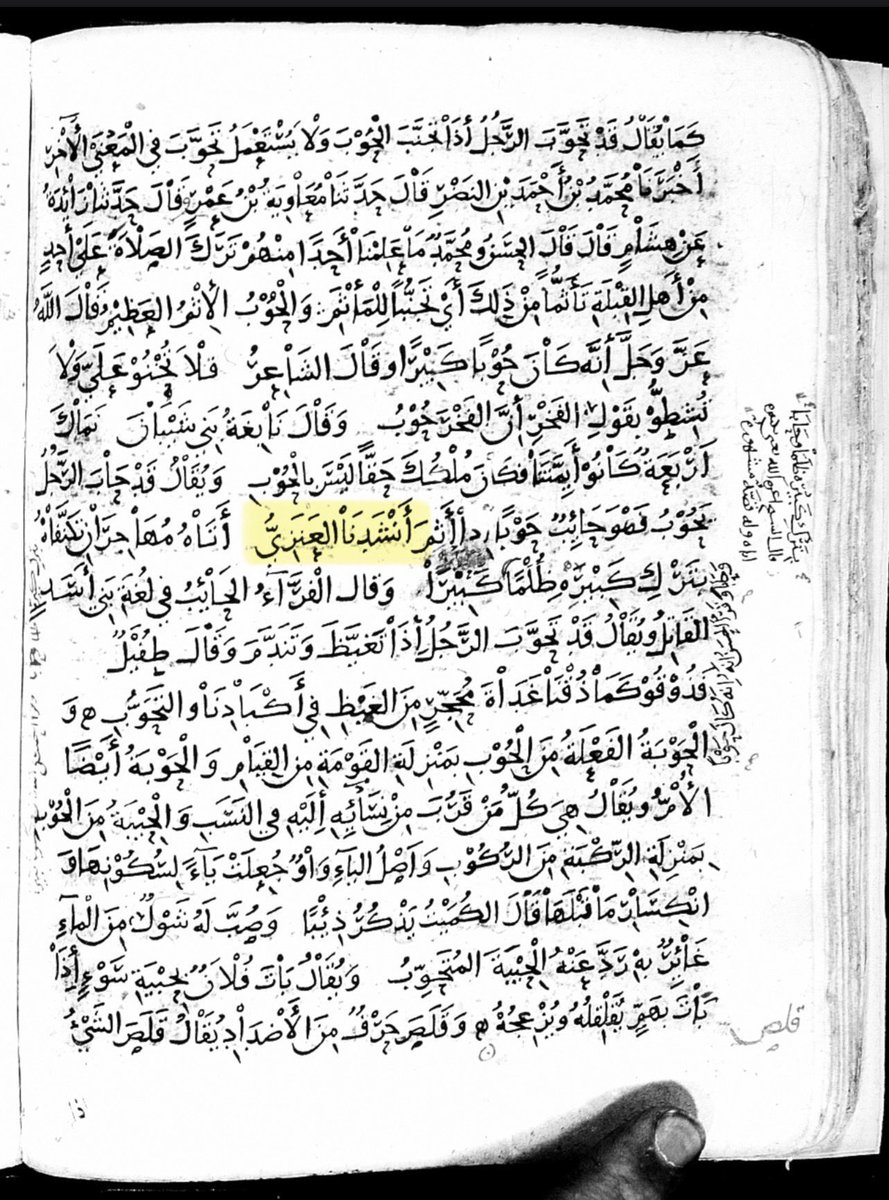 كَمَا يُقَالُ قَدْ تَحَوَّبَ الرَّجُلُ أذَا تَجَنَّبَ الْحُوْبَ وَلَا يُسْتَعْمَلُ تَحَوَّبَ فِي الْمَعْنَى الْأَخِرِ
أَخْبَرَنَا مُحَمَّدُ بْنُ أَحْمَدَ بْنِ النَّضْرِ قَالَ حَدَّثَنَا مُعَاوِيَةُ بْنُ عَمْرٍ قَالَ حَدَّثَنَا زَائِدَةُ
عَنْ هِشَامٍ قَالَ قَالَ الحَسَنُ وَمُحَمَّدٌ مَا عَلِمْنَا أَحَدًا مِنْهُمْ تَرَكَ الصَّلَاةَ عَلَى أَحَدٍ
مِنْ أَهْلِ القِبْلَةِ تَأَثُّمًا مِنْ ذَلِكَ أَيْ تَجَنُّبًا لِلْمَأْثَمِ وَالْحُوْبُ الإِثْمُ العَظِيْمُ قَالَ اللَّهُ
عَزَّ وَجَلَّ أِنَّه كَانَ حُوْبًا كَبِيْرًا وقَالَ الشَّاعِرُ فَلَا تُخْنُوْ عَلَيَّ وَلَا
تُشِطُّوْ بِقَوْلِ الفَخْرِ أِنَّ الفَخْرَ حُوْبُ وَقَالَ نَابِغَةُ بَنِي شَيْبَانَ نَمَاكَ
اَرْبَعَةٌ كَانُوْ أَيِمَّتَنَا فَكَانَ مُلْكُكَ حَقًّا لَيْسَ بِالْحُوْبِ وَيُقَالُ قَدْ حَابَ الرَّجُلُ
يَحُوْبُ فَهْوَ حَائِبٌ حَوْبًا اِذا أَثِمَ أَنْشَدَنَا العَنَزِيُّ أَتَاهُ مُهَاجِرَانِ تَكَنَّفَاهُ
بِتَرْكِ كَبِيْرِهِ ظُلْمًا كَبِيْرًا وَقال الْفَرَّآءُ الحَائِبُ فِي لُغَةِ بَنِي أَسَدٍ
القَاتِلُ وَيُقَالُ قَدْ تَحَوَّبَ الرَّجُلُ أِذَا تَغَيَّظَ وَتَنَدَّمَ وَقَالَ طُفَيْلٌ
فَذُوْقُوْ كَمَا ذُقْنَا غَدَاةَ مُحَجَّرٍ مِنَ الغَيْظِ فِي أَكْبَادِنَا والتَحَوُّبِ ه وَ
الْحَوْبَةُ الفَعْلَةُ مِنَ الْحُوْبِ بِمَنْزِلَةِ القَوْمَةِ مِنَ القِيَامِ وَالْحَوْبَةُ أَيْضًا
الأُمُّ وَيُقَالُ هِيَ كُلُّ مَنْ قَرُبَ مِنْ نِسَآئِهِ أِلَيْهِ فِي النَسَبِ وَالْحِيْبَةُ مِنَ الْحُوْبِ
بِمَنْزِلَةِ الرِّكْبَةِ مِنَ الرُّكُوْبِ وَاَصْلُ اليَآءِ وَاوٌ جُعِلَتْ يَآءً لِسُكُوْنِهَا وَ
انْكِسَارِ مَا قَبْلَهَا قَالَ الكُمَيْتُ يَذْكُرُ ذِئْبًا وَصُبَّ لَهُ شَوْلٌ مِنَ الْمَآءِ
غَائِرٌ بِهِ رَدَّ عَنْهُ الْحِيْبَةَ المُتَحَوِّبُ وَيُقَالُ بَاتَ فُلَانٌ بِحِيْبَةِ سَوْءٍ أِذَا
بَاتَ بِهَمٍّ يُقَلْقِلُهُ وَيُزْعِجُهُ ه وَقَلَصَ حَرْفٌ مِنَ الْأَضْدَادِ يُقَالُ قَلَصَ الشَّيْءُ
قلص